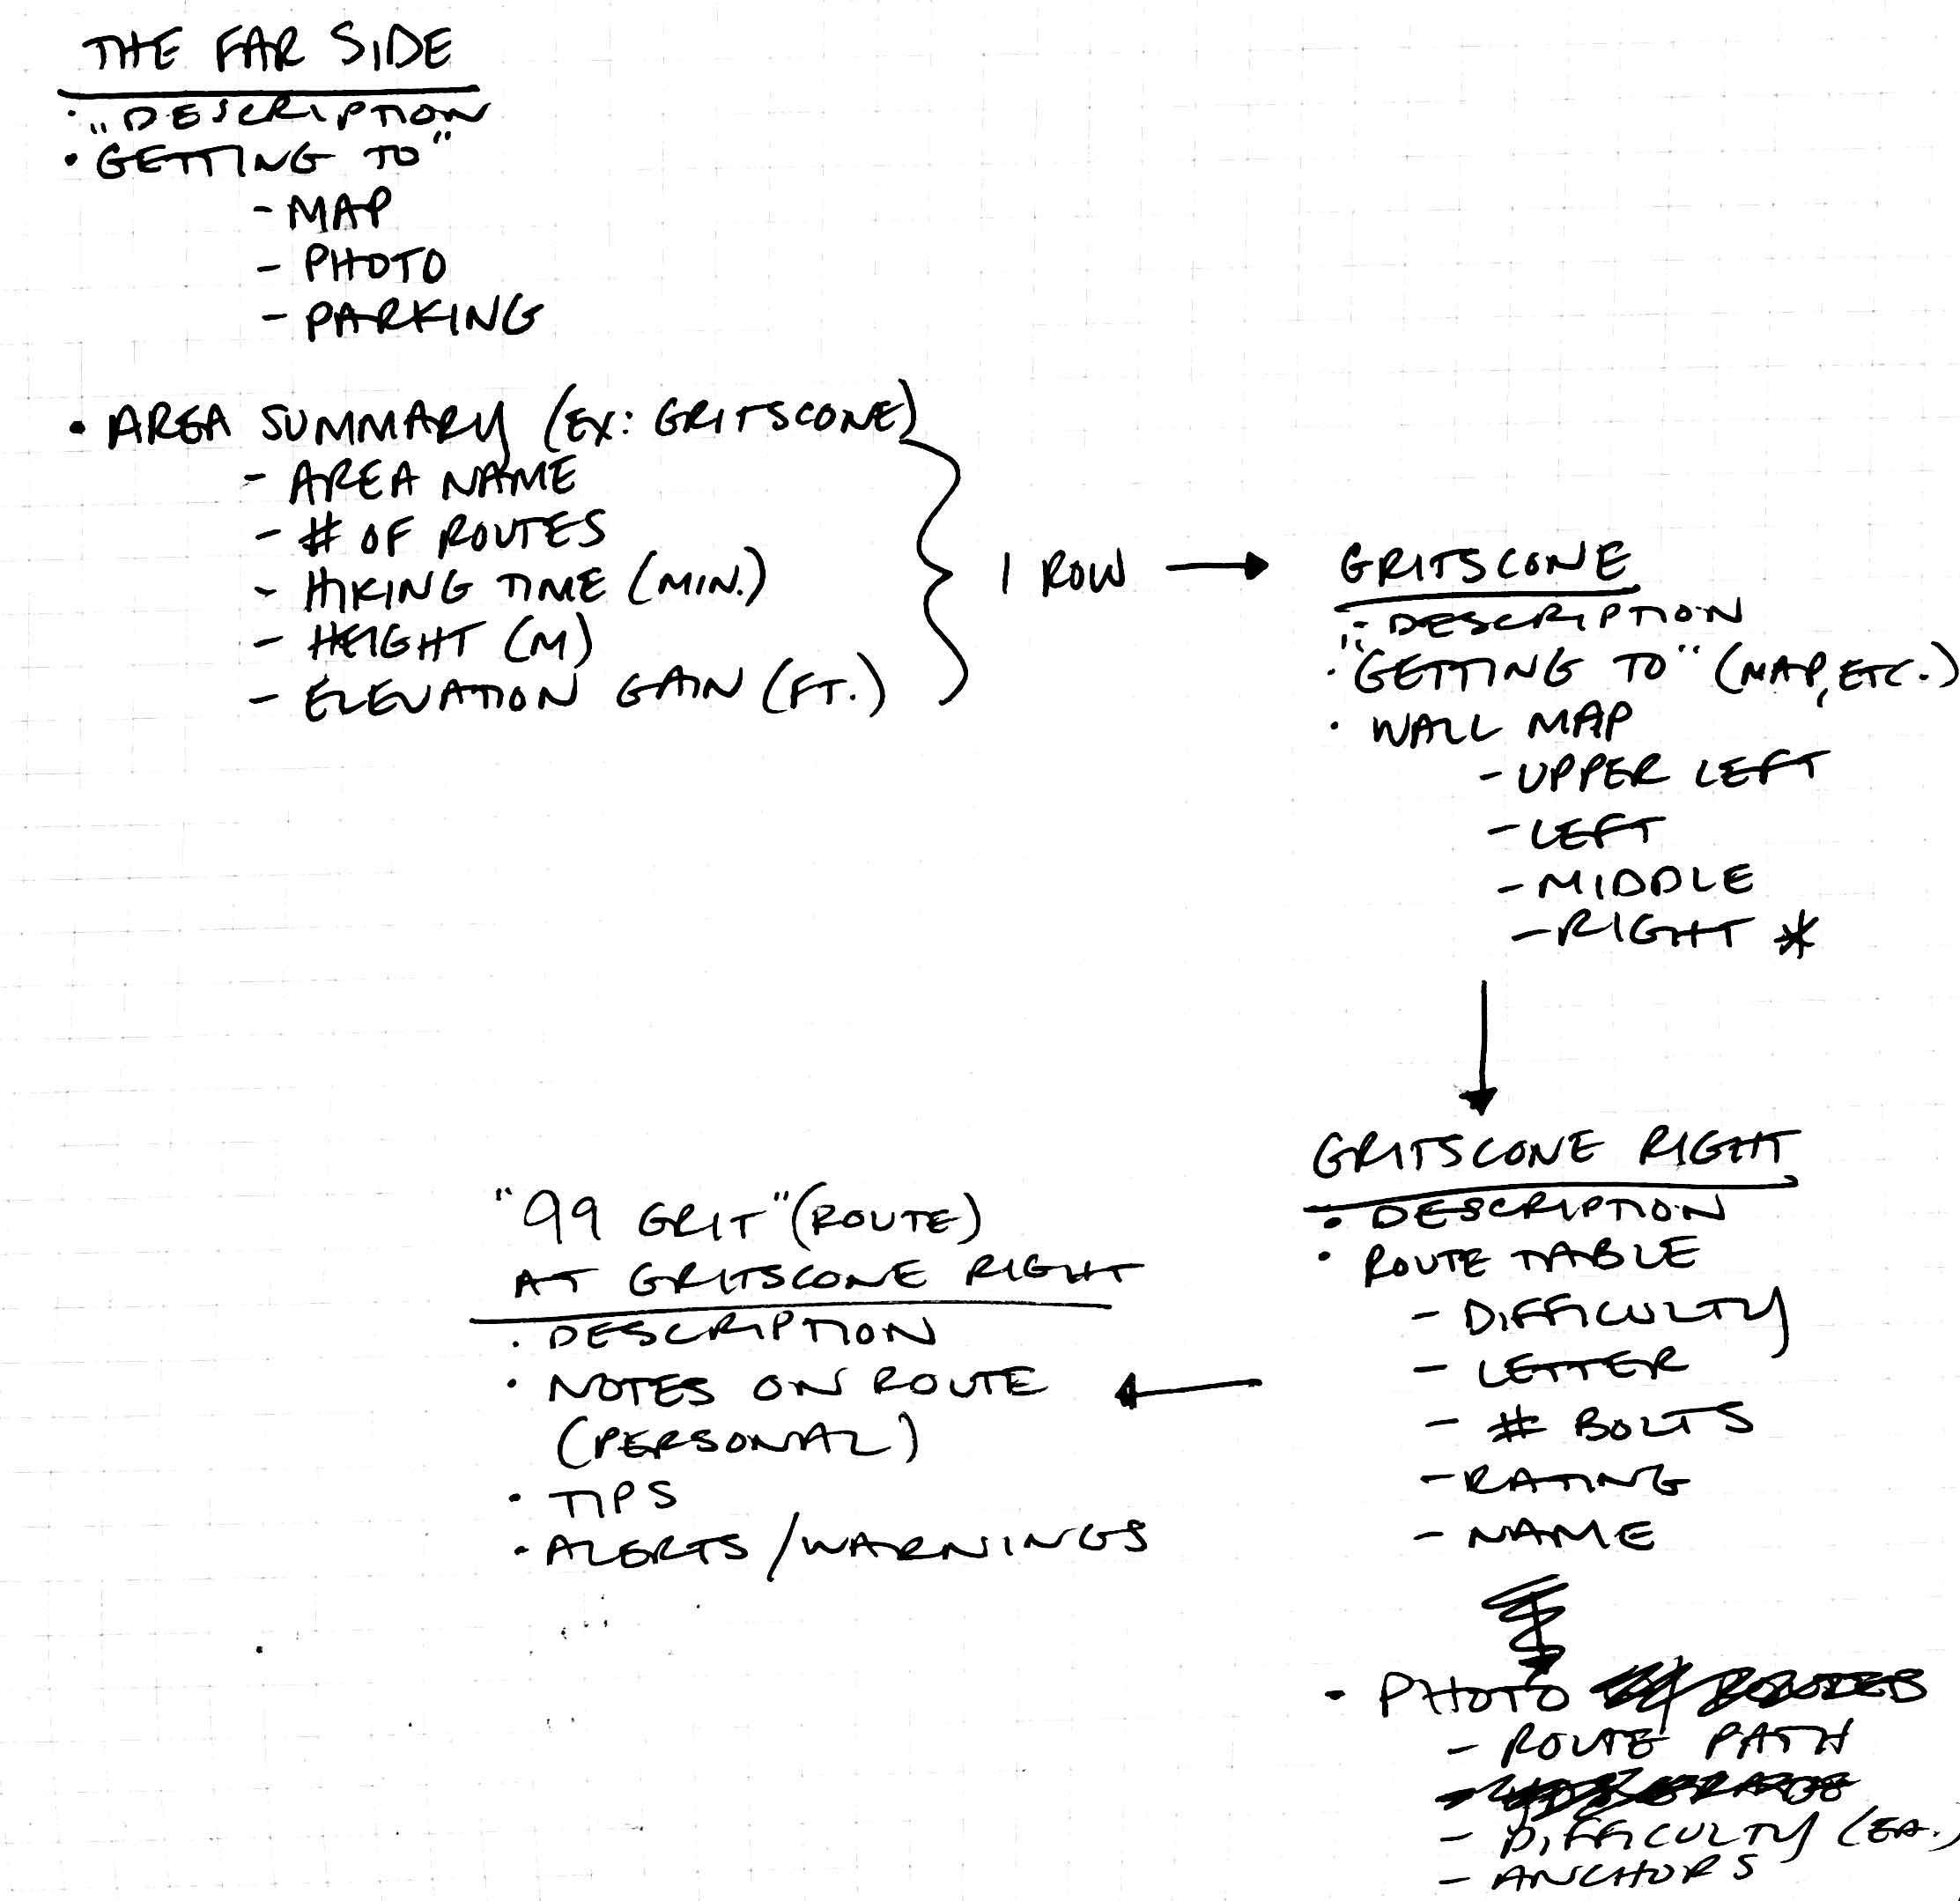 THE FAR SIDE
• DESCRIPTION
• "GETTING TO"
- MAP
- PHOTO
- PARKING
• AREA SUMMARY (EX: GRITSCONE)
- AREA NAME
- # OF ROUTES
- HIKING TIME (MIN.)
- HEIGHT (M)
- ELEVATION GAIN (FT.)
1 ROW →
GRITSCONE
• DESCRIPTION
• "GETTING TO" (MAP, ETC.)
• WALL MAP
- UPPER LEFT
- LEFT
- MIDDLE
- RIGHT *
GRITSCONE RIGHT
• DESCRIPTION
• ROUTE TABLE
- DIFFICULTY
- LETTER
- # BOLTS
- RATING
- NAME
• PHOTO
- ROUTE PATH
- DIFFICULTY (EA.)
- ANCHORS
"99 GRIT" (ROUTE)
AT GRITSCONE RIGHT
• DESCRIPTION
• NOTES ON ROUTE
(PERSONAL)
• TIPS
• ALERTS/WARNINGS